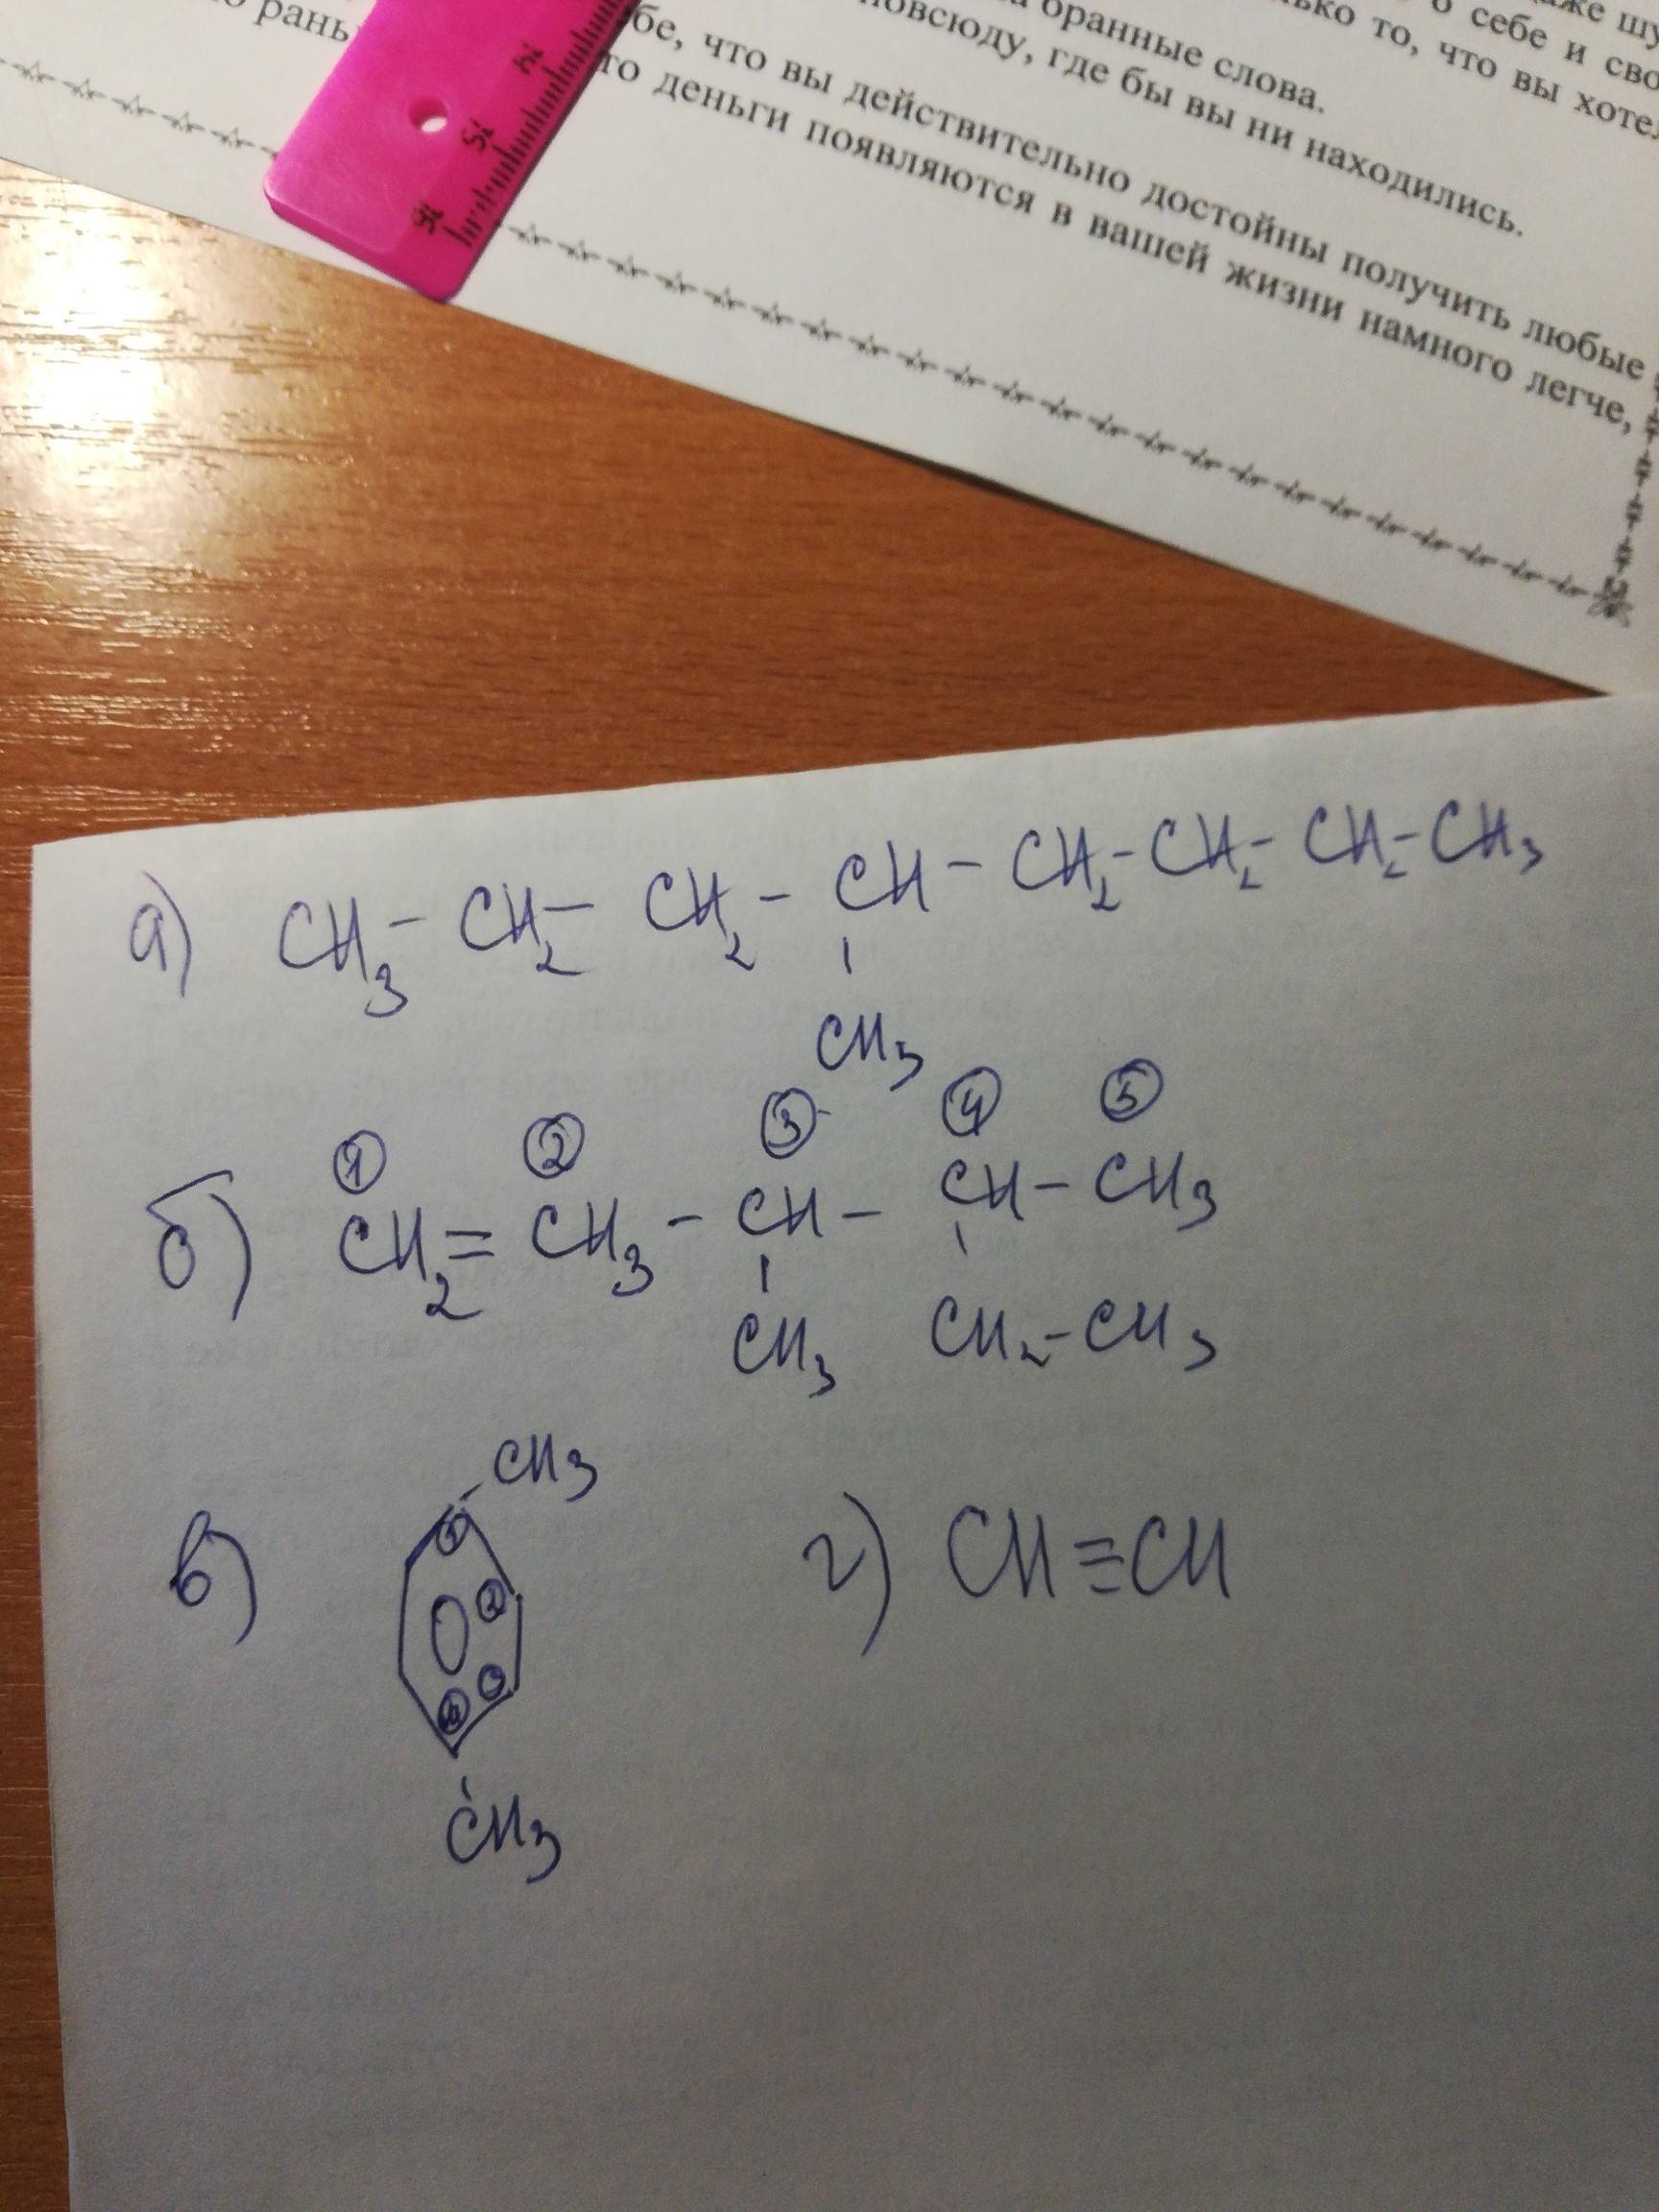 о себе и сво
лько то, что вы хотел
бранные слова.
повсюду, где бы вы ни находились.
бе, что вы действительно достойны получить любые
то деньги появляются в вашей жизни намного легче,
рань
14
15
16
а) CH3 - CH2 - CH2 - CH - CH2 - CH2 - CH2 - CH3
CH3
1 2 3 4 5
б) CH2 = CH3 - CH - CH - CH3
CH3 CH2 - CH3
CH3
в) 1 2 3 4 г) CH ≡ CH
CH3